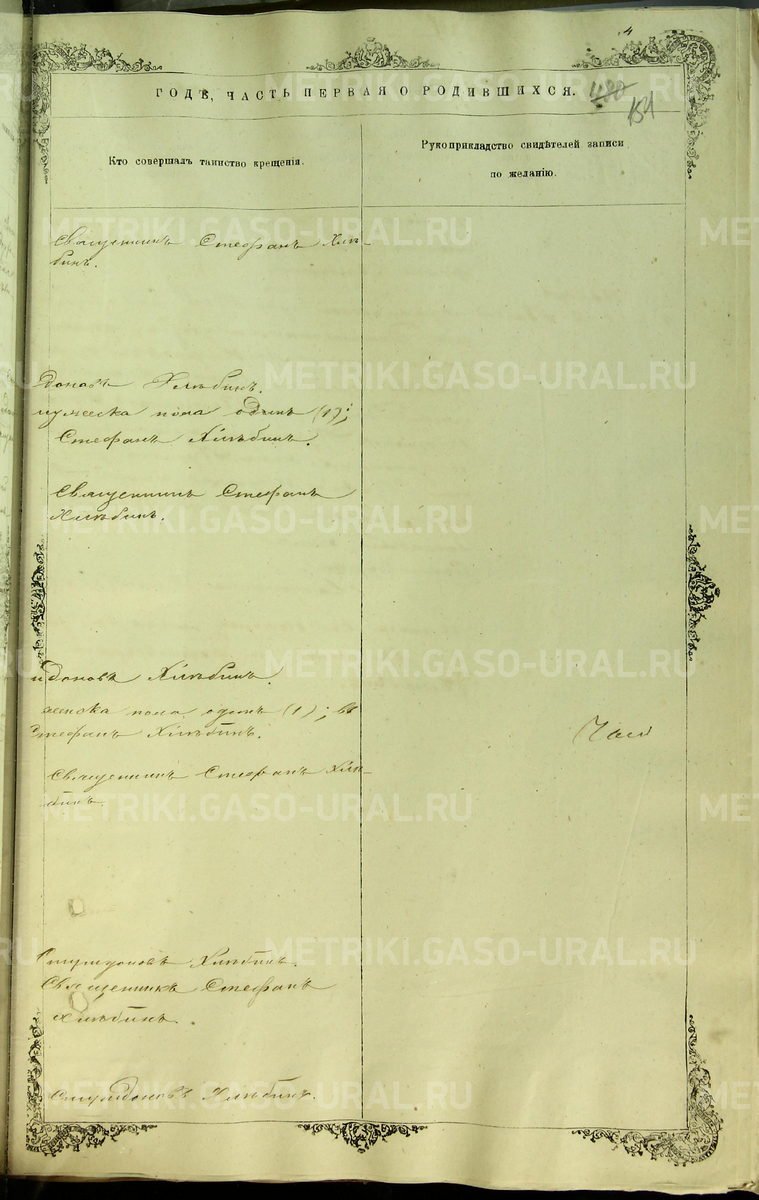 4
ГОДѢ, ЧАСТЬ ПЕРВАЯ О РОДИВШИХСЯ.
480
154
Кто совершалъ таинство крещенія.
Рукоприкладство свидѣтелей записи
по желанію.
Священникъ Стефанъ Хлѣ-
бинъ.
доновъ Хлѣбинъ.
мужеска пола одинъ (1);
Стефанъ Хлѣбинъ.
Священникъ Стефанъ
Хлѣбинъ.
идоновъ Хлѣбинъ.
женска пола одна (1);
Стефанъ Хлѣбинъ.
Священникъ Стефанъ Хлѣ-
бинъ.
Хлѣбинъ.
Священникъ Стефанъ
Хлѣбинъ.
Хлѣбинъ.
METRIKI.GASO-URAL.RU